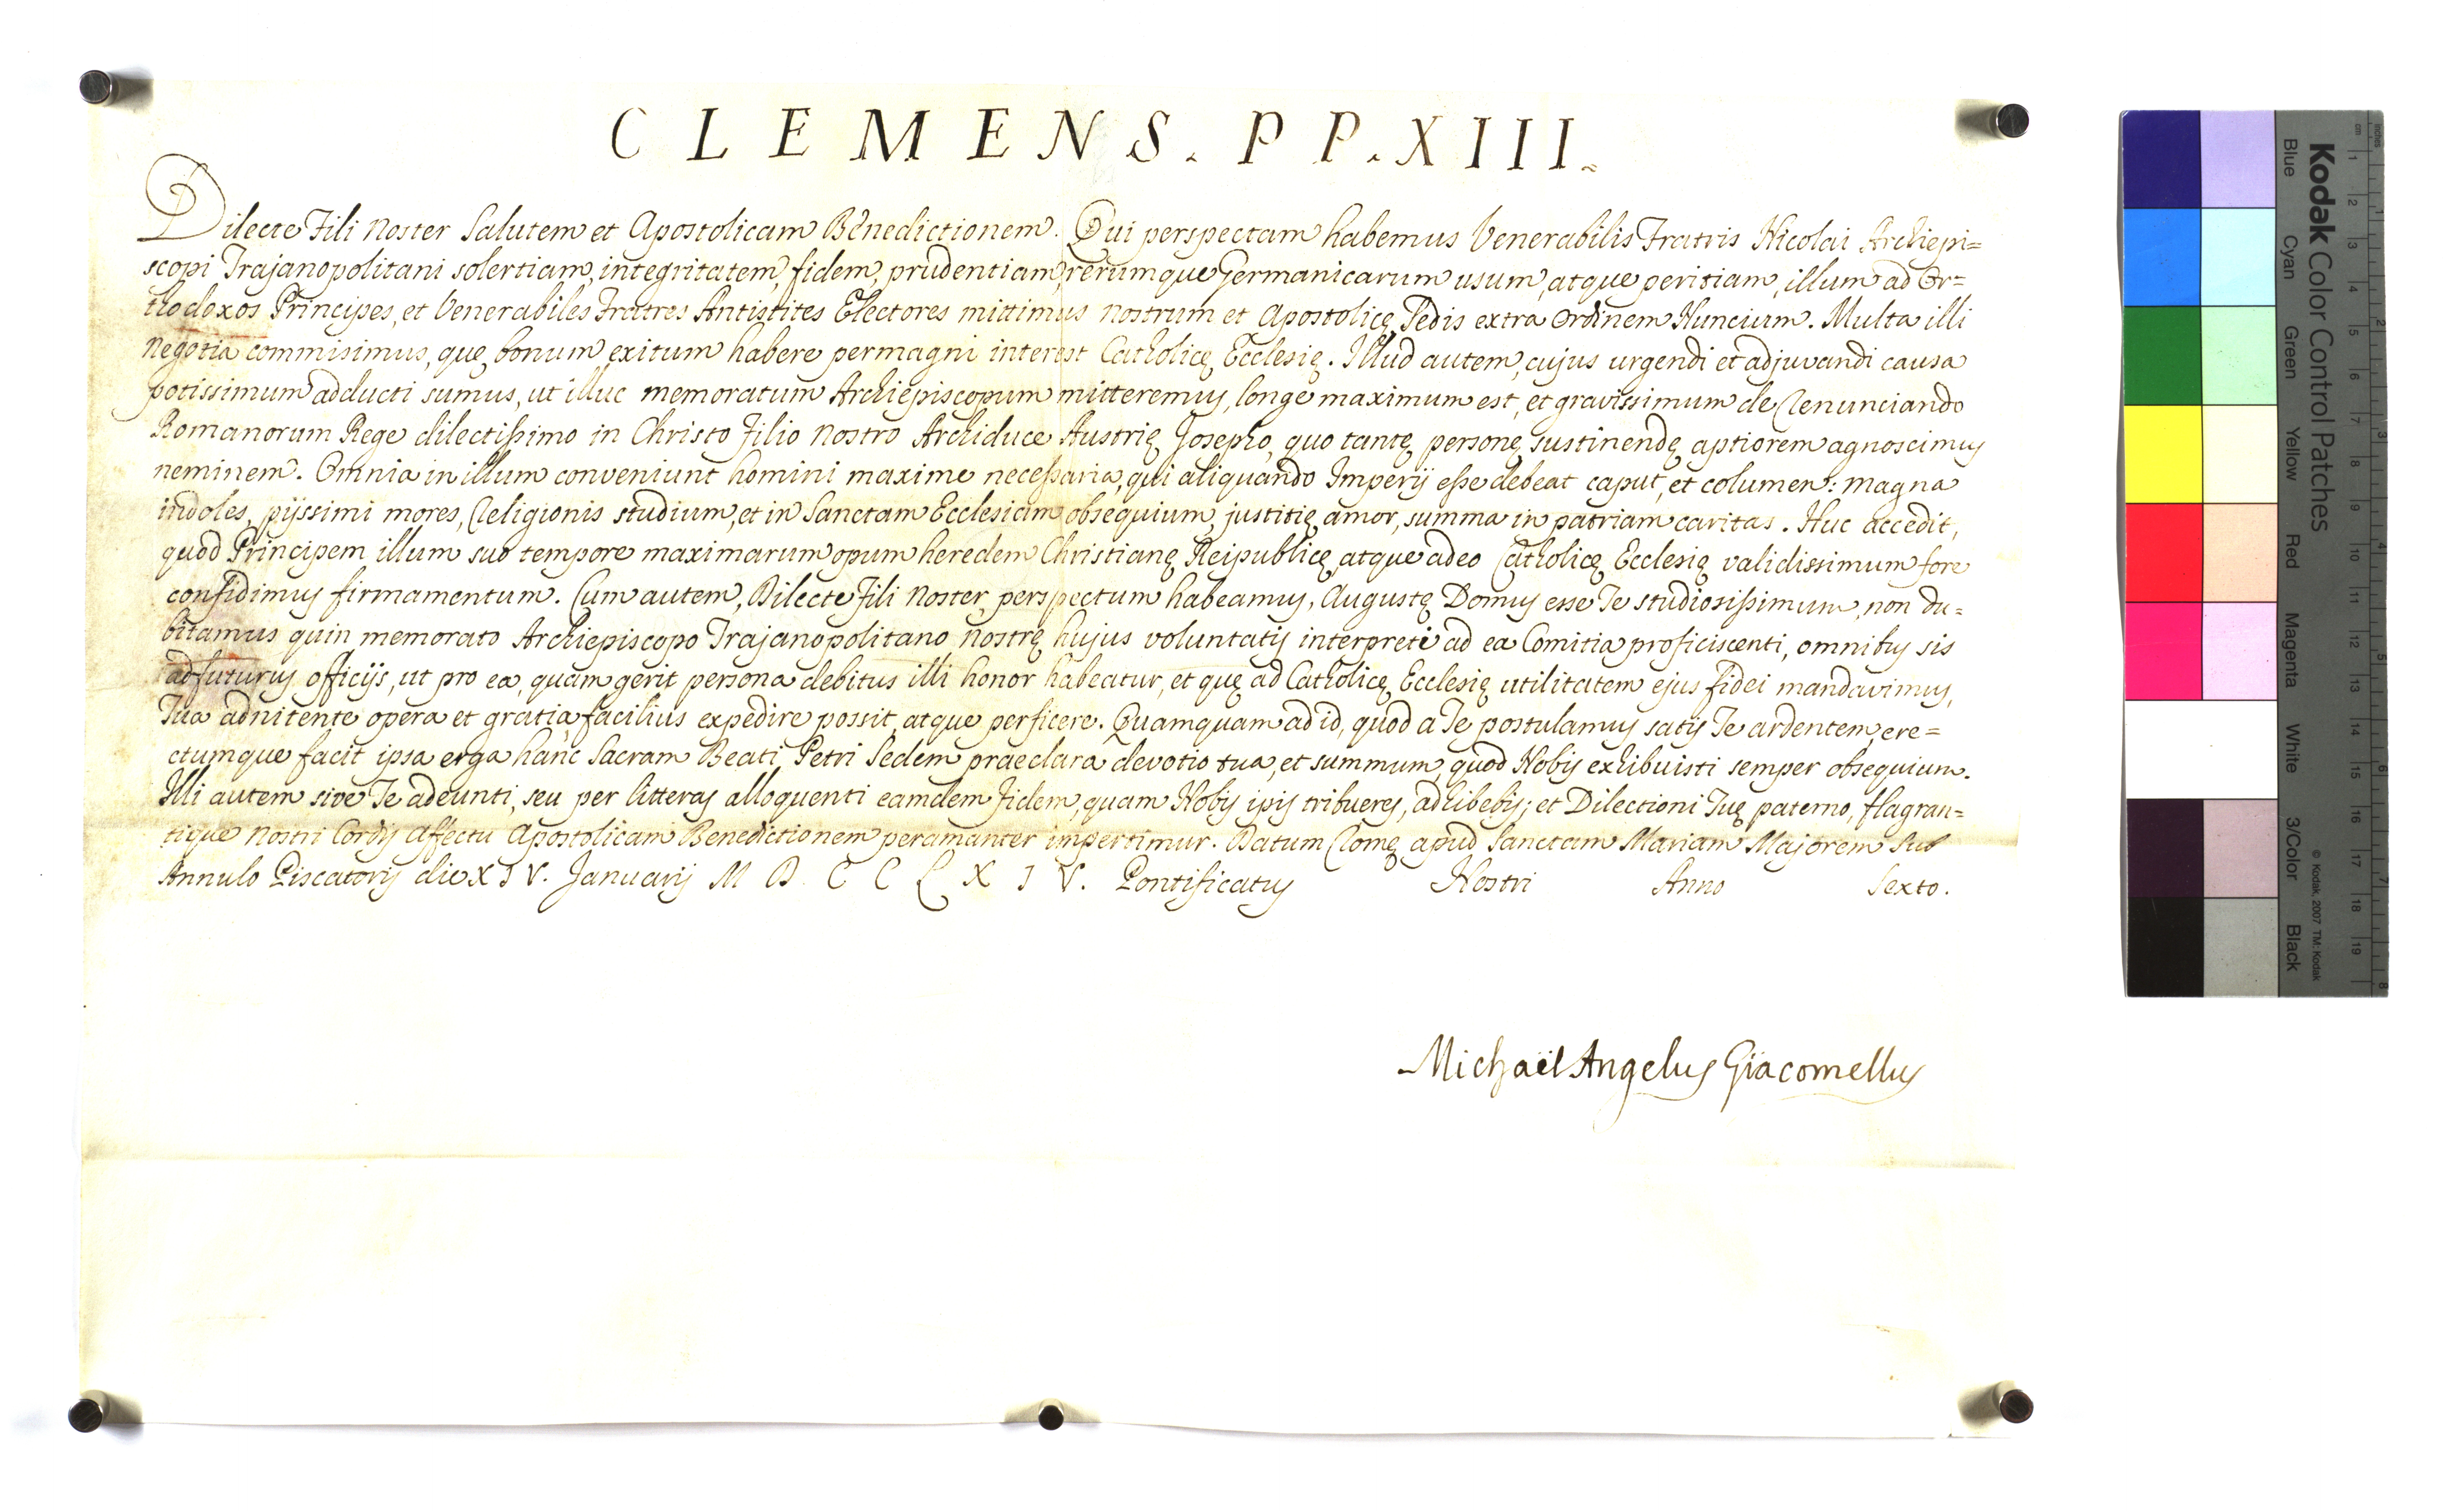 CLEMENS. PP. XIII.
Dilecte Fili Noster Salutem et Apostolicam Benedictionem. Qui perspectam habemus Venerabilis Fratris Nicolai Archiepi=
scopi Trajanopolitani solertiam, integritatem, fidem, prudentiam, rerumque Germanicarum usum, atque peritiam, illum ad Or=
thodoxos Principes, et Venerabiles Fratres Antistites Electores mittimus nostrum et Apostolicę Sedis extra Ordinem Nuncium. Multa illi
negotia commisimus, quę bonum exitum habere permagni interest Catholicę Ecclesię. Illud autem, cujus urgendi et adjuvandi causa
potissimum adducti sumus, ut illuc memoratum Archiepiscopum mitteremus, longe maximum est, et gravissimum de renunciando
Romanorum Rege dilectissimo in Christo Filio Nostro Archiduce Austrię Josepho, quo tantę personę sustinendę aptiorem agnoscimus
neminem. Omnia in illum conveniunt homini maxime necessaria, qui aliquando Imperij esse debeat caput, et columen: magna
indoles, pijssimi mores, Religionis studium, et in Sanctam Ecclesiam obsequium, justitię amor, summa in patriam caritas. Huc accedit,
quod Principem illum suo tempore maximarum opum heredem Christianę Reipublicę, atque adeo Catholicę Ecclesię validissimum fore
confidimus firmamentum. Cum autem, Dilecte Fili Noster, perspectum habeamus, Augustę Domus esse Te studiosissimum, non du=
bitamus quin memorato Archiepiscopo Trajanopolitano nostrę hujus voluntatis interpreti ad ea Comitia proficiscenti, omnibus sis
adfuturus officijs, ut pro ea, quam gerit persona debitus illi honor habeatur, et quę ad Catholicę Ecclesię utilitatem ejus fidei mandavimus,
Tua adnitente opera et gratia, facilius expedire possit, atque perficere. Quamquam ad id, quod a Te postulamus satis Te ardentem, ere=
ctumque facit ipsa erga hanc Sacram Beati Petri Sedem praeclara devotio tua, et summum, quod Nobis exhibuisti semper obsequium.
Illi autem sive Te adeunti, seu per litteras alloquenti eamdem fidem, quam Nobis ipsis tribueres, adhibebis; et Dilectioni Tuę paterno, flagran=
tique Nostri Cordis affectu Apostolicam Benedictionem peramanter impertimur. Datum Romę apud Sanctam Mariam Majorem Sub
Annulo Piscatoris die XIV. Januarij MDCCLXIV. Pontificatus Nostri Anno Sexto.
Michaël Angelus Giacomellus
Kodak Color Control Patches
Blue Cyan Green Yellow Red Magenta White 3/Color Black
© Kodak, 2007 TM: Kodak
cm 1 2 3 4 5 6 7 8 9 10 11 12 13 14 15 16 17 18 19
inches 1 2 3 4 5 6 7 8